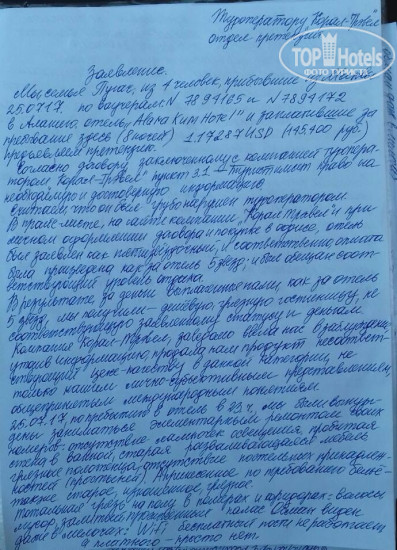 Туроператору Корал-Трэвел
отдел претензий
TOP Hotels
ФОТО ТУРИСТА
Заявление.
Мы семья из 4 человек, прибывшие
25.07.17. по ваучерам: N 7899165 и N 7899172
в Аланию, отель заплатившие за
пребывание здесь USD (115.100 руб.)
предъявляем претензию.
Согласно договору заключенному с компанией туропера-
тором, Корал-Трэвел" пункт 3.1 турист имеет право на
необходимую и достоверную информацию.
Считаем, что он был грубо нарушен туроператором.
В прайс-листе, на сайте компании "Корал Трэвел" и при
личном оформлении договора и покупке в офисе, отель
был заявлен как пятизвездочный, и соответственно, оплата
была произведена как за отель 5 звезд; и был обещан соот-
ветствующий уровень отдыха.
В результате, за деньги выплаченные нами, как за отель
5 звезд, мы получили - дешевую, грязную гостиницу, не
соответствующую заявленному статусу и деньгам.
Компания Корал-Трэвел, заведомо ввела нас в заблуждение,
утаив информацию, продала нам продукт несоответ-
ствующий цене-качеству в данной категории, не
только нашим лично-субъективным представлениям,
общепринятым международным понятием.
25.07.17, по прибытию в отель в 23 ч. мы были вынуж-
дены заниматься элементарным ремонтом своих
номеров: отсутствие лампочек освещения, пробитая
стена в ванной, старая разваливающаяся мебель
грязное полотенца, отсутствие постельных принадлеж-
ностей (простыней). А принесенное по требованию белье-
также старое, изношенное, грязное.
Тотальная грязь на полу в номерах и коридорах: волосы
мусор, палас. Обман виден
даже в мелочах: Wi-Fi бесплатный почти не работает
а платного - просто нет.